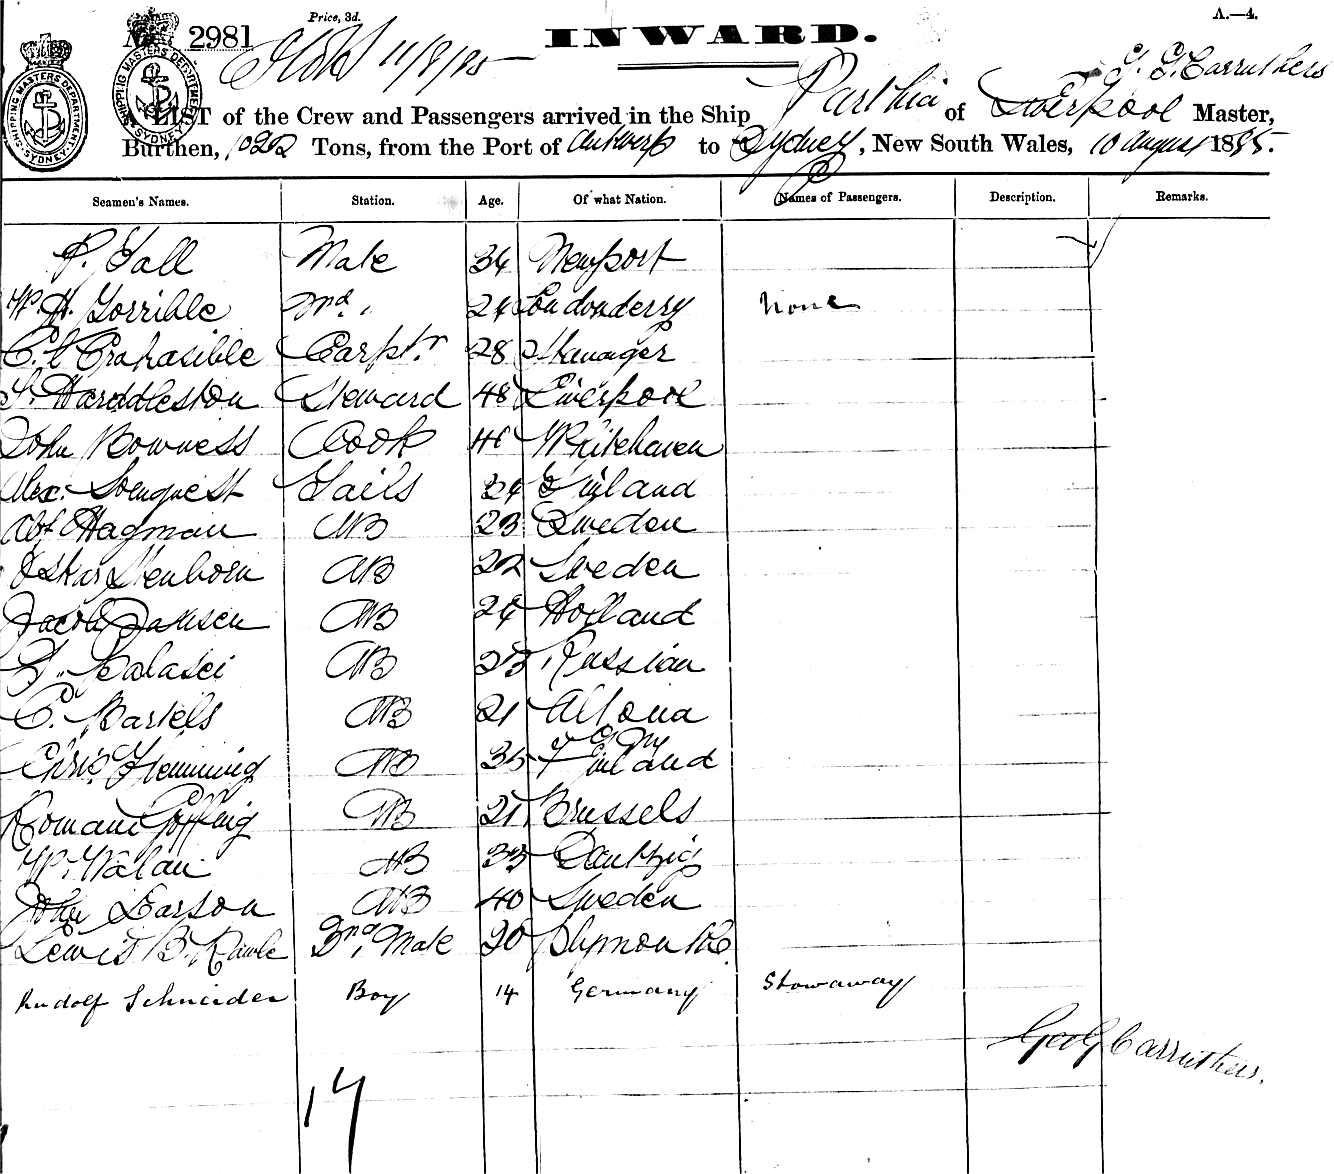 Price, 3d.
A.—4.
No. 2981
INWARD.
11/8/85
G. G. Carruthers
A LIST of the Crew and Passengers arrived in the Ship Parthia of Liverpool Master,
Burthen, 1022 Tons, from the Port of Antwerp to Sydney, New South Wales, 10 August 1885.
SHIPPING MASTERS DEPARTMENT. SYDNEY
SHIPPING MASTERS DEPARTMENT. SYDNEY
Seamen's Names. Station. Age. Of what Nation. Names of Passengers. Description. Remarks.
P. Gall Mate 34 Newport
W. H. Gorrible 2nd. 24 Londonderry None
Carptr. 28
Haroldleston Steward 48 Liverpool
John Bowness Cook Whitehaven
Alex. Sails 24 Finland
Hagman AB 23 Sweden
Oskar Stenborn AB 22 Sweden
Jacob Jansen AB 24 Holland
AB 23 Russian
C. Bartels AB 21 Altona
Chris. Flemming AB 35 Finland
AB 21 Brussels
W. Walan AB 33 Dantzig
John Larson AB 40 Sweden
Lewis B. Rawle 3rd. Mate 20 Plymouth
Rudolf Schneider Boy 14 Germany Stowaway
Geo G Carruthers.
17